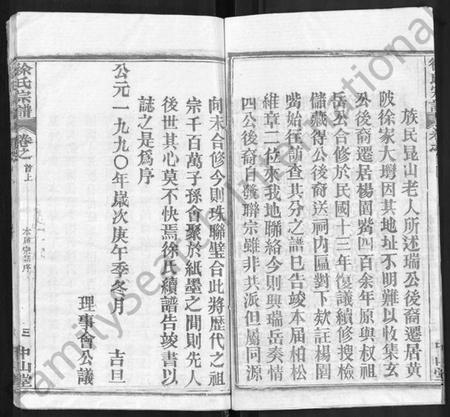 族民昆山老人所述瑞公後裔遷居黃
陂徐家大塆因其地址不明難以收集玄
公後裔遷居楊園嘴四百余年原與權祖
岳公合修於民國十三年復議續修搜檢
儲藏得公後裔送祠內區對下欵註楊園
嘴始往訪查其分之譜巳告竣本届柏松
維章二位來我地聯絡今則興瑞岳奏情
四公後裔自鳌聯宗雖非共派但屬同源
向未合修今則珠聯璧合此將歷代之祖
宗千百萬子孫會聚於紙墨之間則先人
後世其心莫不快焉徐氏續譜告竣書以
誌之是爲序
公元一九九〇年歲次庚午季冬月 吉旦
理事會公議
徐氏宗譜
卷之首上
三
中山堂
FamilySearch International